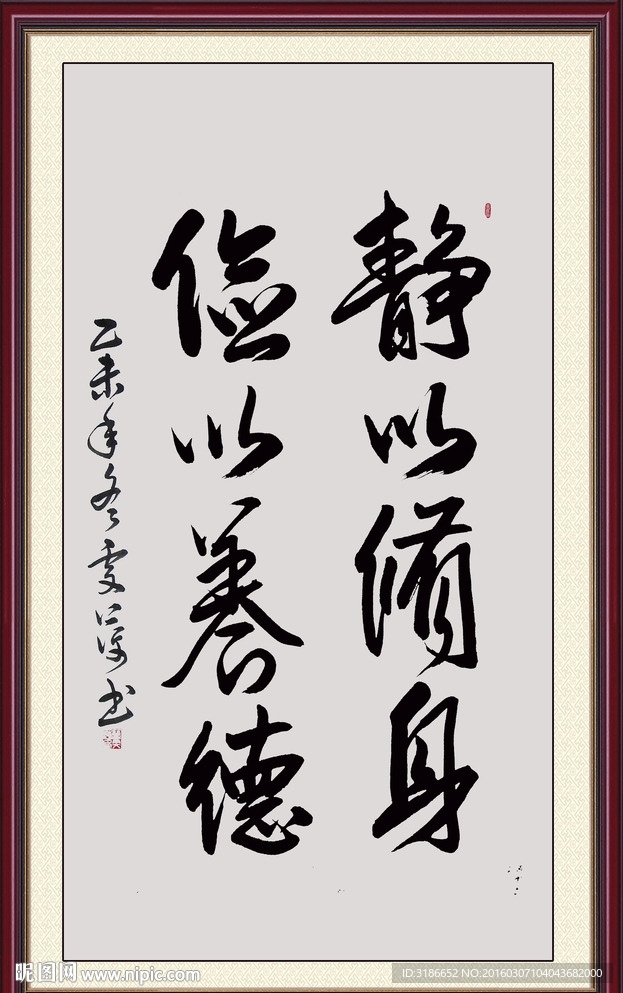 静以脩身
俭以养德
乙未年冬雯
书
昵图网 www.nipic.com
ID:3186652 NO:20160307104043682000